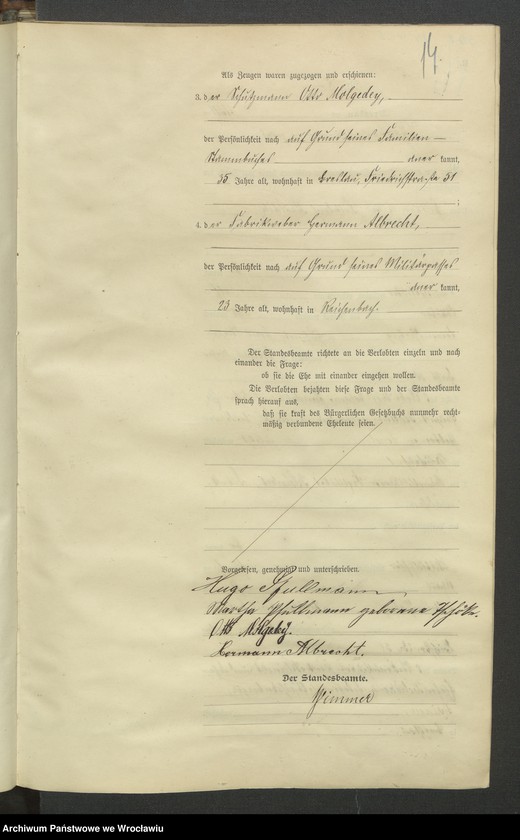 14.
Als Zeugen waren zugezogen und erschienen:
3. der Schutzmann Otto Molgedey,
der Persönlichkeit nach auf Grund seines Familien-
stammbuches aner kannt,
35 Jahre alt, wohnhaft in Breslau, Friedrichstraße 51
;
4. der Fabrikweber Hermann Albrecht,
der Persönlichkeit nach auf Grund seines Militärpasses
aner kannt,
23 Jahre alt, wohnhaft in Reichenbach.
Der Standesbeamte richtete an die Verlobten einzeln und nach
einander die Frage:
ob sie die Ehe mit einander eingehen wollen.
Die Verlobten bejahten diese Frage und der Standesbeamte
sprach hierauf aus,
daß sie kraft des Bürgerlichen Gesetzbuchs nunmehr recht-
mäßig verbundene Eheleute seien.
Vorgelesen, genehmigt und unterschrieben.
Hugo Pfullmann,
Martha Pfullmann geborene
Otto Molgedey.
Hermann Albrecht.
Der Standesbeamte.
Wimmer
Archiwum Państwowe we Wrocławiu